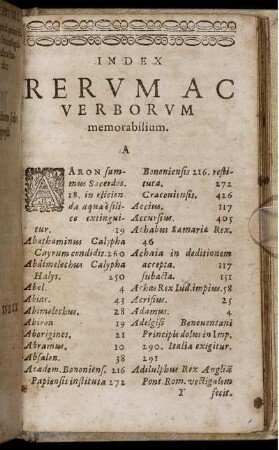 INDEX
RERVM AC
VERBORVM
memorabilium.
A
AARON summus
mus Sacerdos.
18. in eliciend
da aqua è silic
ce extinguitur
tur. 19
Abathaminus Calypha
Cayrum condidit. 260
Abdimelechus Calypha
Halys. 250
Abel. 4
Abias. 43
Abimelechus. 28
Abiron 19
Aborigines. 21
Abramus. 10
Absalon. 38
Academ. Bononiens. 216
Papiensis instituta 272
Bononiensis 216. resti-
tuta. 272
Cracoviensis. 426
Accius. 117
Accursius. 405
Achabus Samariæ Rex.
46
Achaia in deditionem
accepta. 117
subacta. 151
Achas Rex Iud. impius. 58
Acrisius. 25
Adamus. 4
Adelgisi Beneventani
Principis dolus in Imp.
290. Italia exigitur.
291
Adilulphus Rex Angliæ
Pont. Rom. vectigalem
Y fecit.